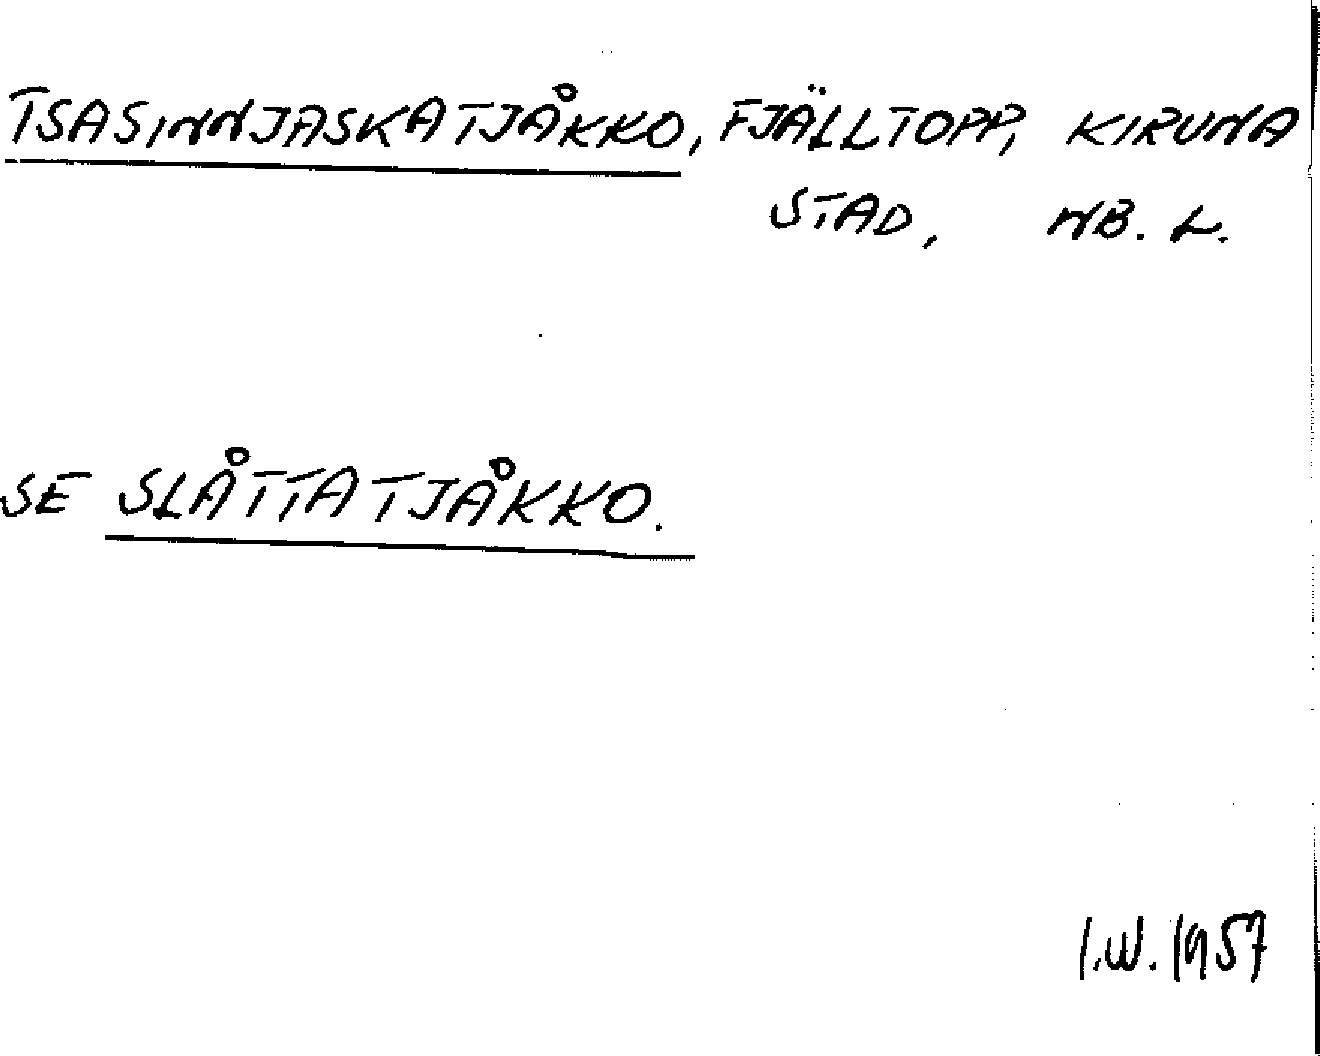 TSASINNJASKATJÅKKO, FJÄLLTOPP, KIRUNA
STAD, NB. L.
SE SLÅTTATJÅKKO.
I.W. 1957